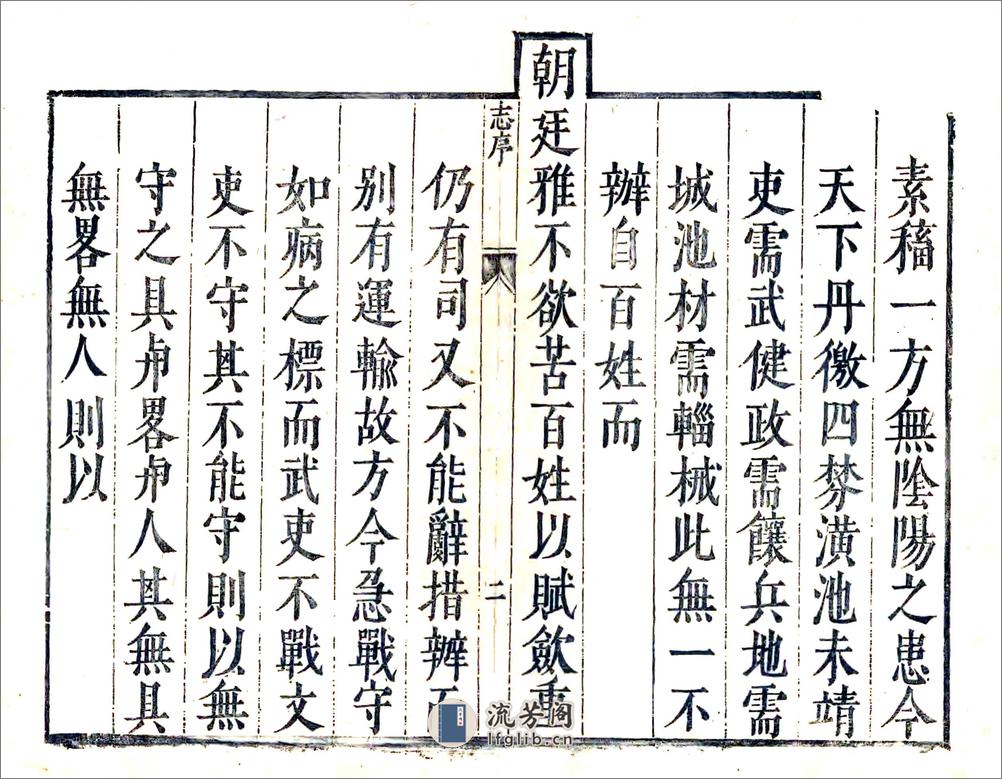 素稸一方無陰陽之患今
天下丹徼四棼潢池未靖
吏需武健政需饟兵地需
城池材需輜械此無一不
辦自百姓而
朝廷雅不欲苦百姓以賦歛重
志序
二
仍有司又不能辭措辦
别有運輸故方今急戰守
如病之標而武吏不戰文
吏不守其不能守則以無
守之具畧人其無具
無畧無人則以
流芳阁
lfglib.cn